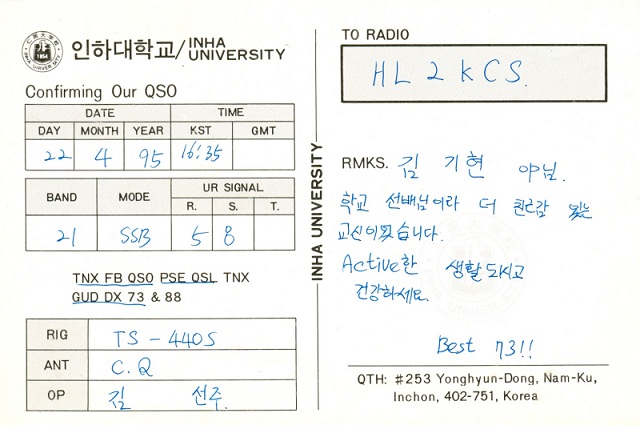 인하대학교/INHA UNIVERSITY
Confirming Our QSO
DATE TIME
DAY MONTH YEAR KST GMT
22 4 95 16:35
BAND MODE UR SIGNAL
R. S. T.
21 SSB 5 8
TNX FB QSO PSE QSL TNX
GUD DX 73 & 88
RIG TS-440S
ANT C.Q
OP 김 선주.
INHA UNIVERSITY
TO RADIO
HL2KCS.
RMKS. 김 기현 님.
학교 선배님이라 더 친근감 있는
교신이었습니다.
Active한 생활 도시고
건강하세요.
Best 73!!
QTH: #253 Yonghyun-Dong, Nam-Ku,
Inchon, 402-751, Korea